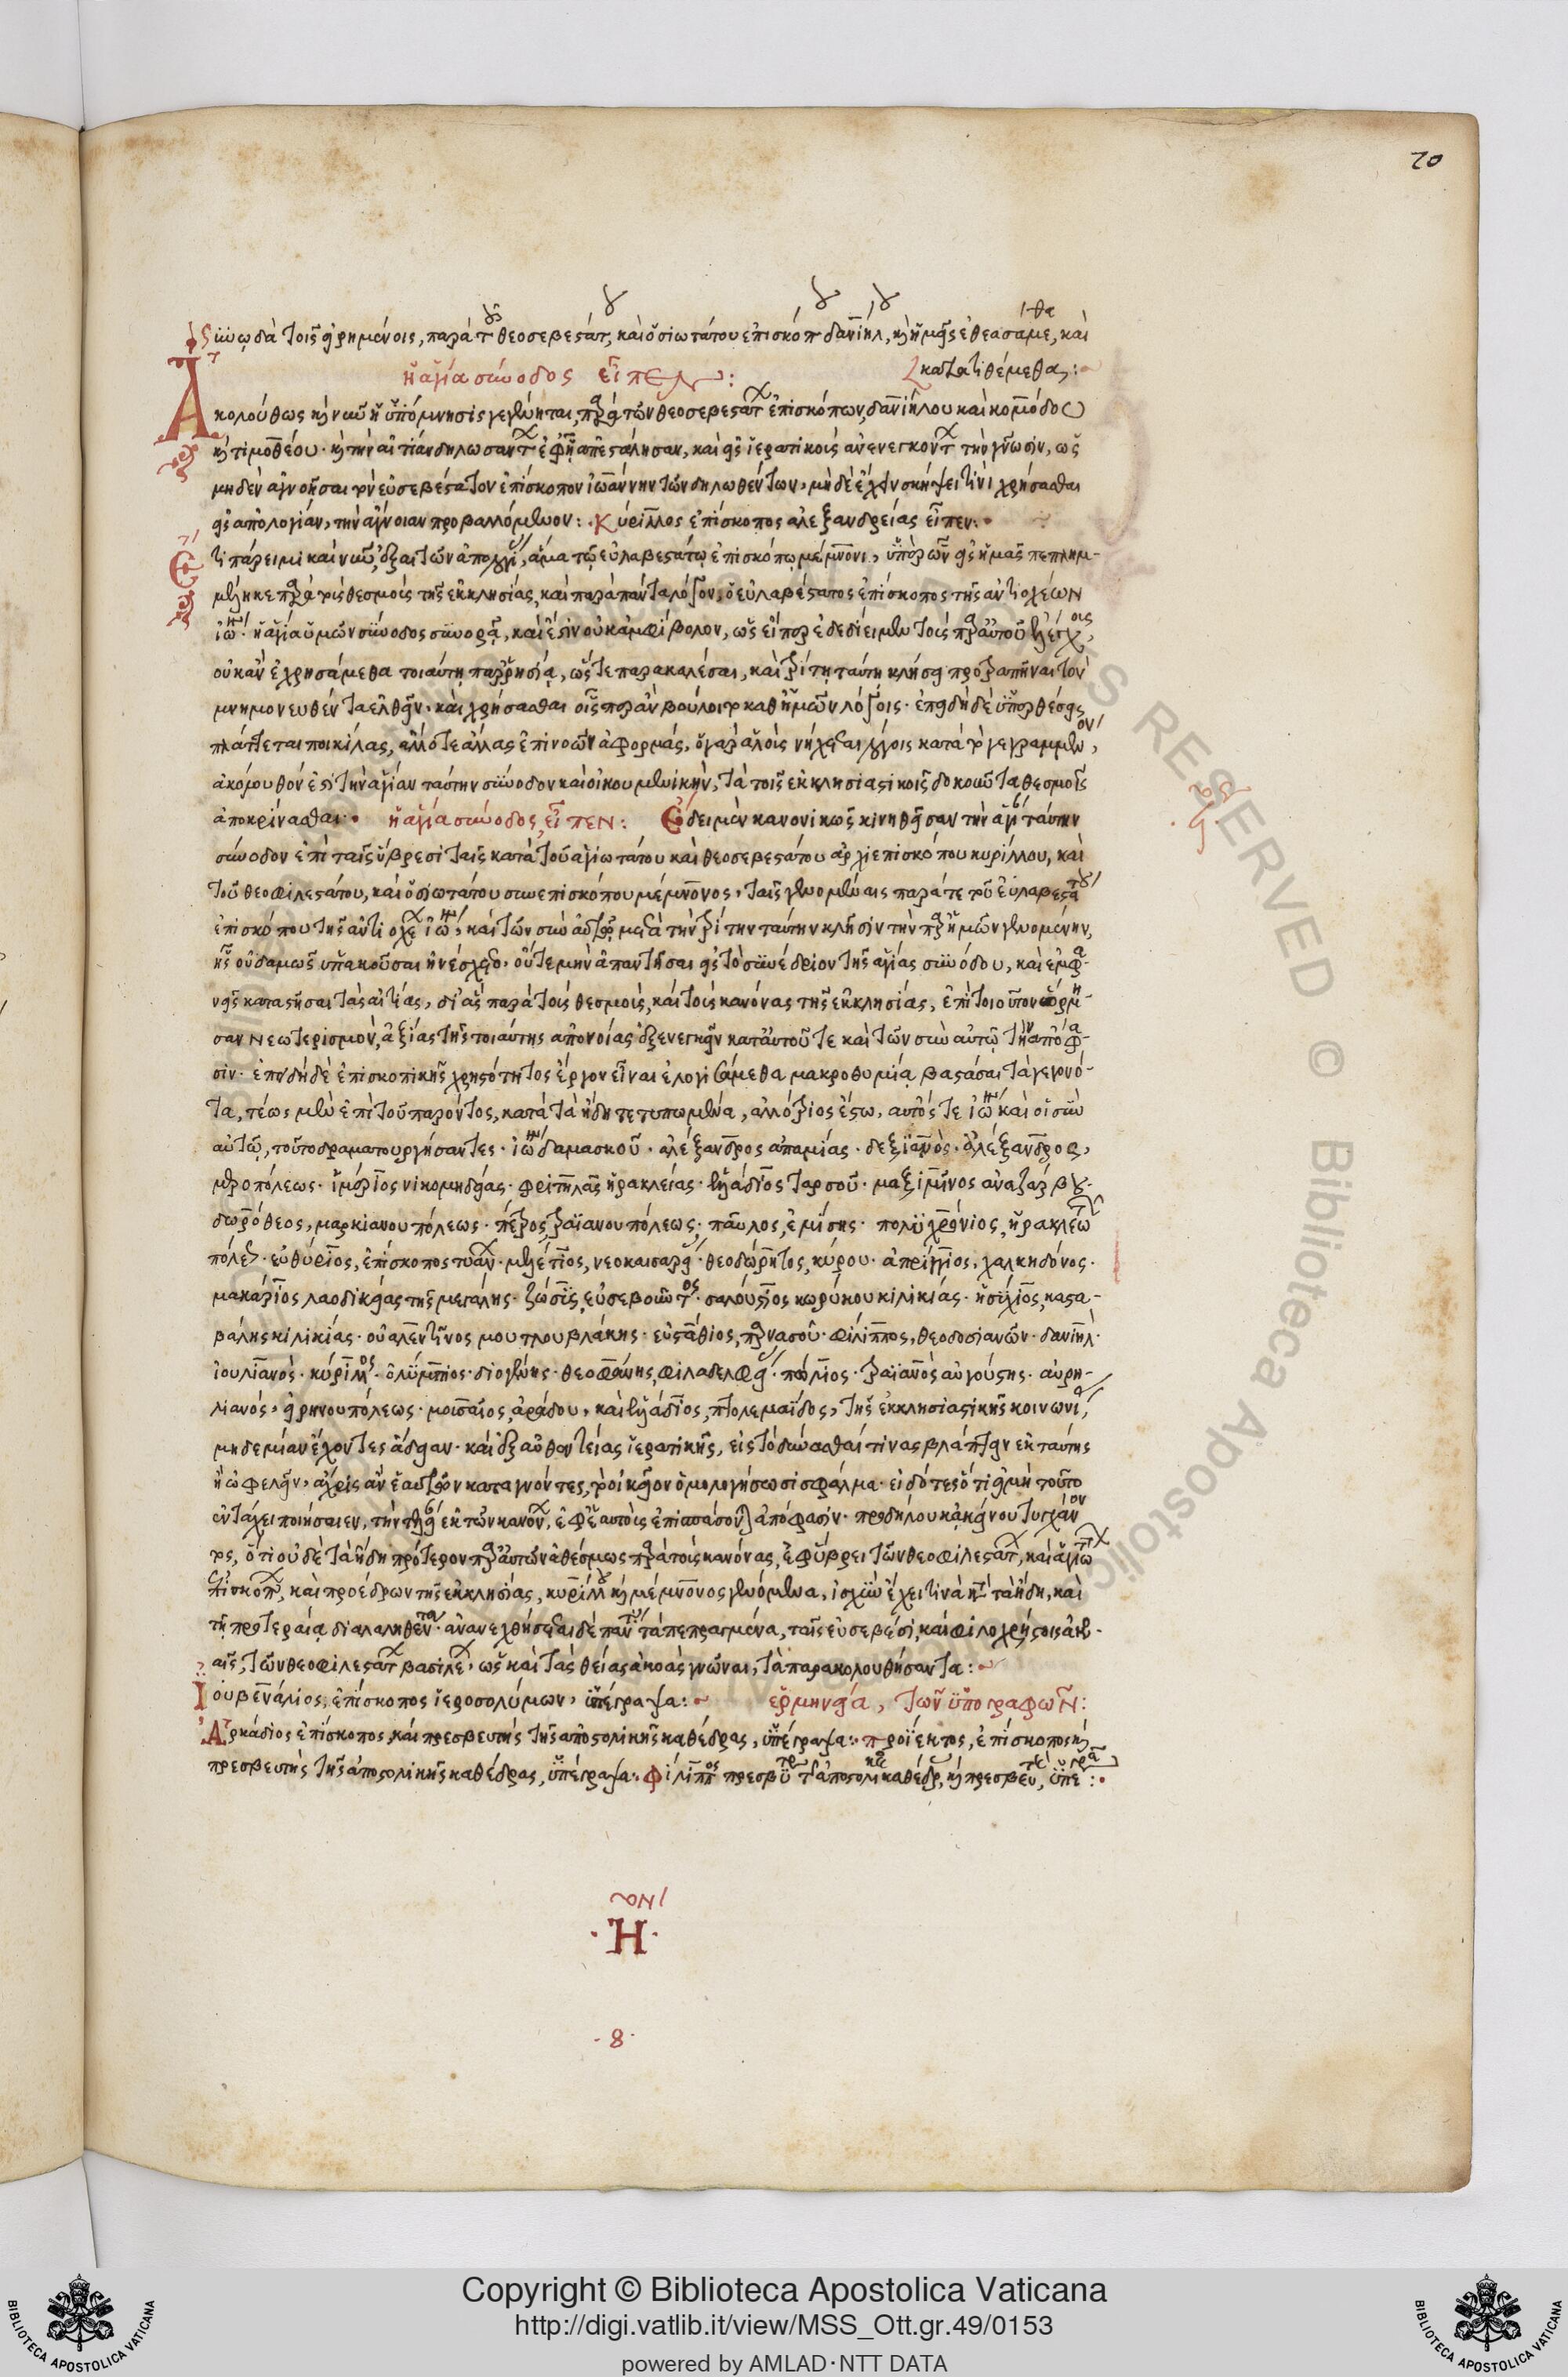 70
συνῳδὰ τοῖς εἰρημένοις, παρὰ τοῦ θεοσεβεστάτου καὶ ὁσιωτάτου ἐπισκόπου δανιὴλ, καὶ ἡμεῖς ἐθεασάμεθα, καὶ
κατατιθέμεθα:
ἡ ἁγία σύνοδος εἶπεν:
Ἀκολούθως καὶ νῦν ἡ ὑπόμνησις γεγένηται, παρὰ τῶν θεοσεβεστάτων ἐπισκόπων, δανιήλου καὶ κομόδου
καὶ τιμοθέου· καὶ τὴν αἰτίαν δηλωσάντων ἐφ' ᾗ ἀπεστάλησαν, καὶ εἰς ἱερατικοὺς ἀνενεγκόντων τὴν γνῶσιν, ὡς
μηδὲν ἀγνοῆσαι τὸν εὐσεβέστατον ἐπίσκοπον ἰωάννην τῶν δηλωθέντων, μὴ δὲ ἔχειν σκήψει τινὶ χρήσασθαι
εἰς ἀπολογίαν, τὴν ἄγνοιαν προβαλλόμενον: Κύριλλος ἐπίσκοπος ἀλεξανδρείας εἶπεν:
Ἔτι πάρειμι καὶ νῦν, ἅμα τῷ εὐλαβεστάτῳ ἐπισκόπῳ μέμνονι, πεπλημ-
μέληκε παρὰ τοὺς θεσμοὺς τῆς ἐκκλησίας, καὶ παρὰ πάντα λόγον, ὁ εὐλαβέστατος ἐπίσκοπος τῆς ἀντιοχέων
ἰωάννης· ἡ ἁγία ὑμῶν σύνοδος συνορᾷ, καὶ ἔστιν οὐκ ἀμφίβολον, ὡς εἴπερ ἐδεδίειμεν τοῖς παρ' αὐτοῦ ἐλέγχοις,
οὐκ ἂν ἐχρησάμεθα τοιαύτῃ παρρησίᾳ, ὥστε παρακαλέσαι, καὶ τρίτῃ ταύτῃ κλήσει προτραπῆναι τὸν
μνημονευθέντα ἐλθεῖν· καὶ χρήσασθαι οἷσπερ ἂν βούλοιτο καθ' ἡμῶν λόγοις· ἐπειδὴ δὲ ὑπερθέσεις
πλάττεται ποικίλας, ἄλλοτε ἄλλας ἐπινοῶν ἀφορμάς, κατὰ τὸ γεγραμμένον,
ἀκόλουθόν ἐστι τὴν ἁγίαν ταύτην σύνοδον καὶ οἰκουμενικὴν, τὰ τοῖς ἐκκλησιαστικοῖς δοκοῦντα θεσμοῖς
ἀποκρίνασθαι: ἡ ἁγία σύνοδος, εἶπεν: Ἔδει μὲν κανονικῶς κινηθεῖσαν τὴν ἁγίαν ταύτην
σύνοδον ἐπὶ ταῖς ὕβρεσι ταῖς κατὰ τοῦ ἁγιωτάτου καὶ θεοσεβεστάτου ἀρχιεπισκόπου κυρίλλου, καὶ
τοῦ θεοφιλεστάτου, καὶ ὁσιωτάτου συνεπισκόπου μέμνονος, ταῖς γενομέναις παρά τε τοῦ εὐλαβεστάτου
ἐπισκόπου τῆς ἀντιοχέων ἰωάννου, καὶ τῶν σὺν αὐτῷ μετὰ τὴν τρίτην ταύτην κλῆσιν τὴν παρ' ἡμῶν γενομένην,
ἧς οὐδαμῶς ὑπακοῦσαι ἠνέσχετο, οὔτε μὴν ἀπαντῆσαι εἰς τὸ συνέδριον τῆς ἁγίας συνόδου, καὶ ἐμφα-
νεῖς καταστῆσαι τὰς αἰτίας, δι' ἃς παρὰ τοὺς θεσμοὺς, καὶ τοὺς κανόνας τῆς ἐκκλησίας, ἐπὶ τοιοῦτον ὥρμη-
σαν νεωτερισμὸν, ἀξίας τῆς τοιαύτης ἀπονοίας ἐξενεγκεῖν κατ' αὐτοῦ τε καὶ τῶν σὺν αὐτῷ τὴν ἀπόφα-
σιν· ἐπειδὴ δὲ ἐπισκοπικῆς χρηστότητος ἔργον εἶναι ἐλογισάμεθα μακροθυμίᾳ βαστάσαι τὰ γεγονό-
τα, τέως μὲν ἐπὶ τοῦ παρόντος, κατὰ τὰ ἤδη τετυπωμένα, ἀλλότριος ἔστω, αὐτός τε ἰωάννης καὶ οἱ σὺν
αὐτῷ, τοῦτο δραματουργήσαντες· ἰωάννης δαμασκοῦ· ἀλέξανδρος ἀπαμίας· δεξιανός· ἀλέξανδρος,
ἱεραπόλεως· ἱμέριος νικομηδείας· φριτηλᾶς ἡρακλείας· ἑλλάδιος ταρσοῦ· μαξιμῖνος ἀναζαρβοῦ·
δωρόθεος, μαρκιανουπόλεως· πέτρος, τραϊανουπόλεως· παῦλος, ἐμίσης· πολυχρόνιος, ἡρακλεωτῶν
πόλεως· εὐθύριος, ἐπίσκοπος τυάνων· μελέτιος, νεοκαισαρείας· θεοδώρητος, κύρου· ἀπρίγγιος, χαλκηδόνος·
μακάριος λαοδικείας τῆς μεγάλης· ζώσις, εὐσεβουντος· σαλούστιος κωρύκου κιλικίας· ἡσύχιος, καστα-
βάλης κιλικίας· οὐαλεντῖνος μουτλουβλάκης· εὐστάθιος, παρνασοῦ· φίλιππος, θεοδοσιανῶν· δανιήλ·
ἰουλιανός· κύριλλος· ὀλύμπιος· διογένης· θεοφάνης, φιλαδελφείας· τραϊανὸς αὐγούστης· αὐρη-
λιανὸς, εἰρηνουπόλεως· μουσαῖος, ἀράδου, καὶ ἑλλάδιος, πτολεμαΐδος, τῆς ἐκκλησιαστικῆς κοινωνίας,
μηδεμίαν ἔχοντες ἄδειαν· καὶ ἐξ αὐθεντείας ἱερατικῆς, εἰς τὸ δύνασθαί τινας βλάπτειν ἐκ ταύτης
ἢ ὠφελεῖν, ἄχρις ἂν ἑαυτῶν καταγνόντες, τὸ οἰκεῖον ὁμολογήσωσι σφάλμα· εἰδότες ὅτι εἰ μὴ τοῦτο
ἐν τάχει ποιήσαιεν, τὴν τελείαν ἐκ τῶν κανόνων, ἐφ' ἑαυτοῖς ἐπισπάσονται ἀπόφασιν· προδήλου κἀκείνου τυγχάνον
τος, ὅτι οὐδὲ τὰ ἤδη πρότερον παρ' αὐτῶν ἀθέσμως παρὰ τοὺς κανόνας, ἐφ' ὕβρει τῶν θεοφιλεστάτων, καὶ ἁγιωτάτων
ἐπισκόπων, καὶ προέδρων τῆς ἐκκλησίας, κυρίλλου καὶ μέμνονος γενόμενα, ἰσχὺν ἔχει τινὰ κατὰ τὰ ἤδη, καὶ
τῇ προτεραίᾳ διαλαληθέντα· ἀνανεχθήσεται δὲ πάντα τὰ πεπραγμένα, ταῖς εὐσεβέσι, καὶ φιλοχρίστοις ἀκο-
αῖς, τῶν θεοφιλεστάτων βασιλέων, ὡς καὶ τὰς θείας ἀκοὰς γνῶναι, τὰ παρακολουθήσαντα:
Ἰουβενάλιος, ἐπίσκοπος ἱεροσολύμων, ὑπέγραψα: ἑρμηνεία, τῶν ὑπογραφῶν:
Ἀρκάδιος ἐπίσκοπος, καὶ πρεσβευτὴς τῆς ἀποστολικῆς καθέδρας, ὑπέγραψα: Προίεκτος, ἐπίσκοπος καὶ
πρεσβευτὴς τῆς ἀποστολικῆς καθέδρας, ὑπέγραψα· Φίλιππος πρεσβύτερος τῆς ἀποστολικῆς καθέδρας, καὶ πρεσβευτὴς, ὑπέγραψα:
·Η·
·8·
Copyright © Biblioteca Apostolica Vaticana
http://digi.vatlib.it/view/MSS_Ott.gr.49/0153
powered by AMLAD·NTT DATA
BIBLIOTECA APOSTOLICA VATICANA
BIBLIOTECA APOSTOLICA VATICANA